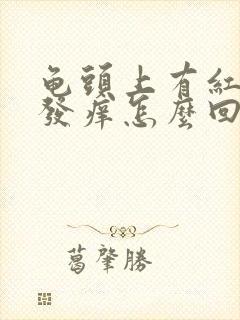 龟頭上有紅
發痒怎麼回
葛肇勝